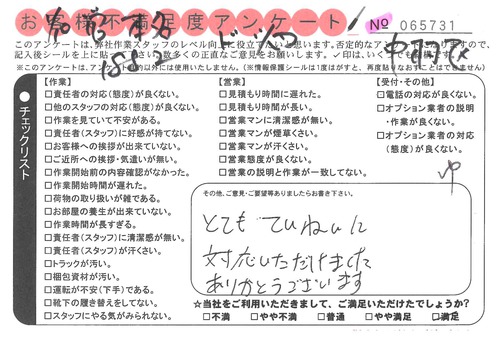 お客様不満足度アンケート
№ 065731
このアンケートは、弊社作業スタッフのレベル向上に役立てたいと思います。否定的なアンケートになりますので、
記入後シールを上に貼って
数多くの正直なご意見をお願いします。✓印は、いくつでも
※このアンケートは、アンケート
以外には使用いたしません。(※情報保護シールは1度はがすと、再度貼りなおすことはできません)
チェックリスト
【作業】
□責任者の対応(態度)が良くない。
□他のスタッフの対応(態度)が良くない。
□作業を見ていて不安がある。
□責任者(スタッフ)に好感が持てない。
□お客様への挨拶が出来ていない。
□ご近所への挨拶・気遣いが無い。
□作業開始前の内容確認がなかった。
□作業開始時間が遅れた。
□荷物の取り扱いが雑である。
□お部屋の養生が出来ていない。
□作業時間が長すぎる。
□責任者(スタッフ)に清潔感が無い。
□責任者(スタッフ)が汗くさい。
□トラックが汚い。
□梱包資材が汚い。
□運転が不安(下手)である。
□靴下の履き替えをしてない。
□スタッフにやる気がみられない。
【営業】
□見積もり時間に遅れた。
□見積もり時間が長い。
□営業マンに清潔感が無い。
□営業マンが煙草くさい。
□営業マンが汗くさい。
□営業態度が良くない。
□営業の説明と作業が一致してない。
【受付・その他】
□電話の対応が良くない。
□オプション業者の説明
・作業が良くない。
□オプション業者の対応
(態度)が良くない。
その他、ご意見・ご要望等ありましたらお書き下さい。
とてもていねいに
対応いただけました
ありがとうございます
☆当社をご利用いただきまして、ご満足いただけたでしょうか?
□不満 □やや不満 □普通 □やや満足 □満足